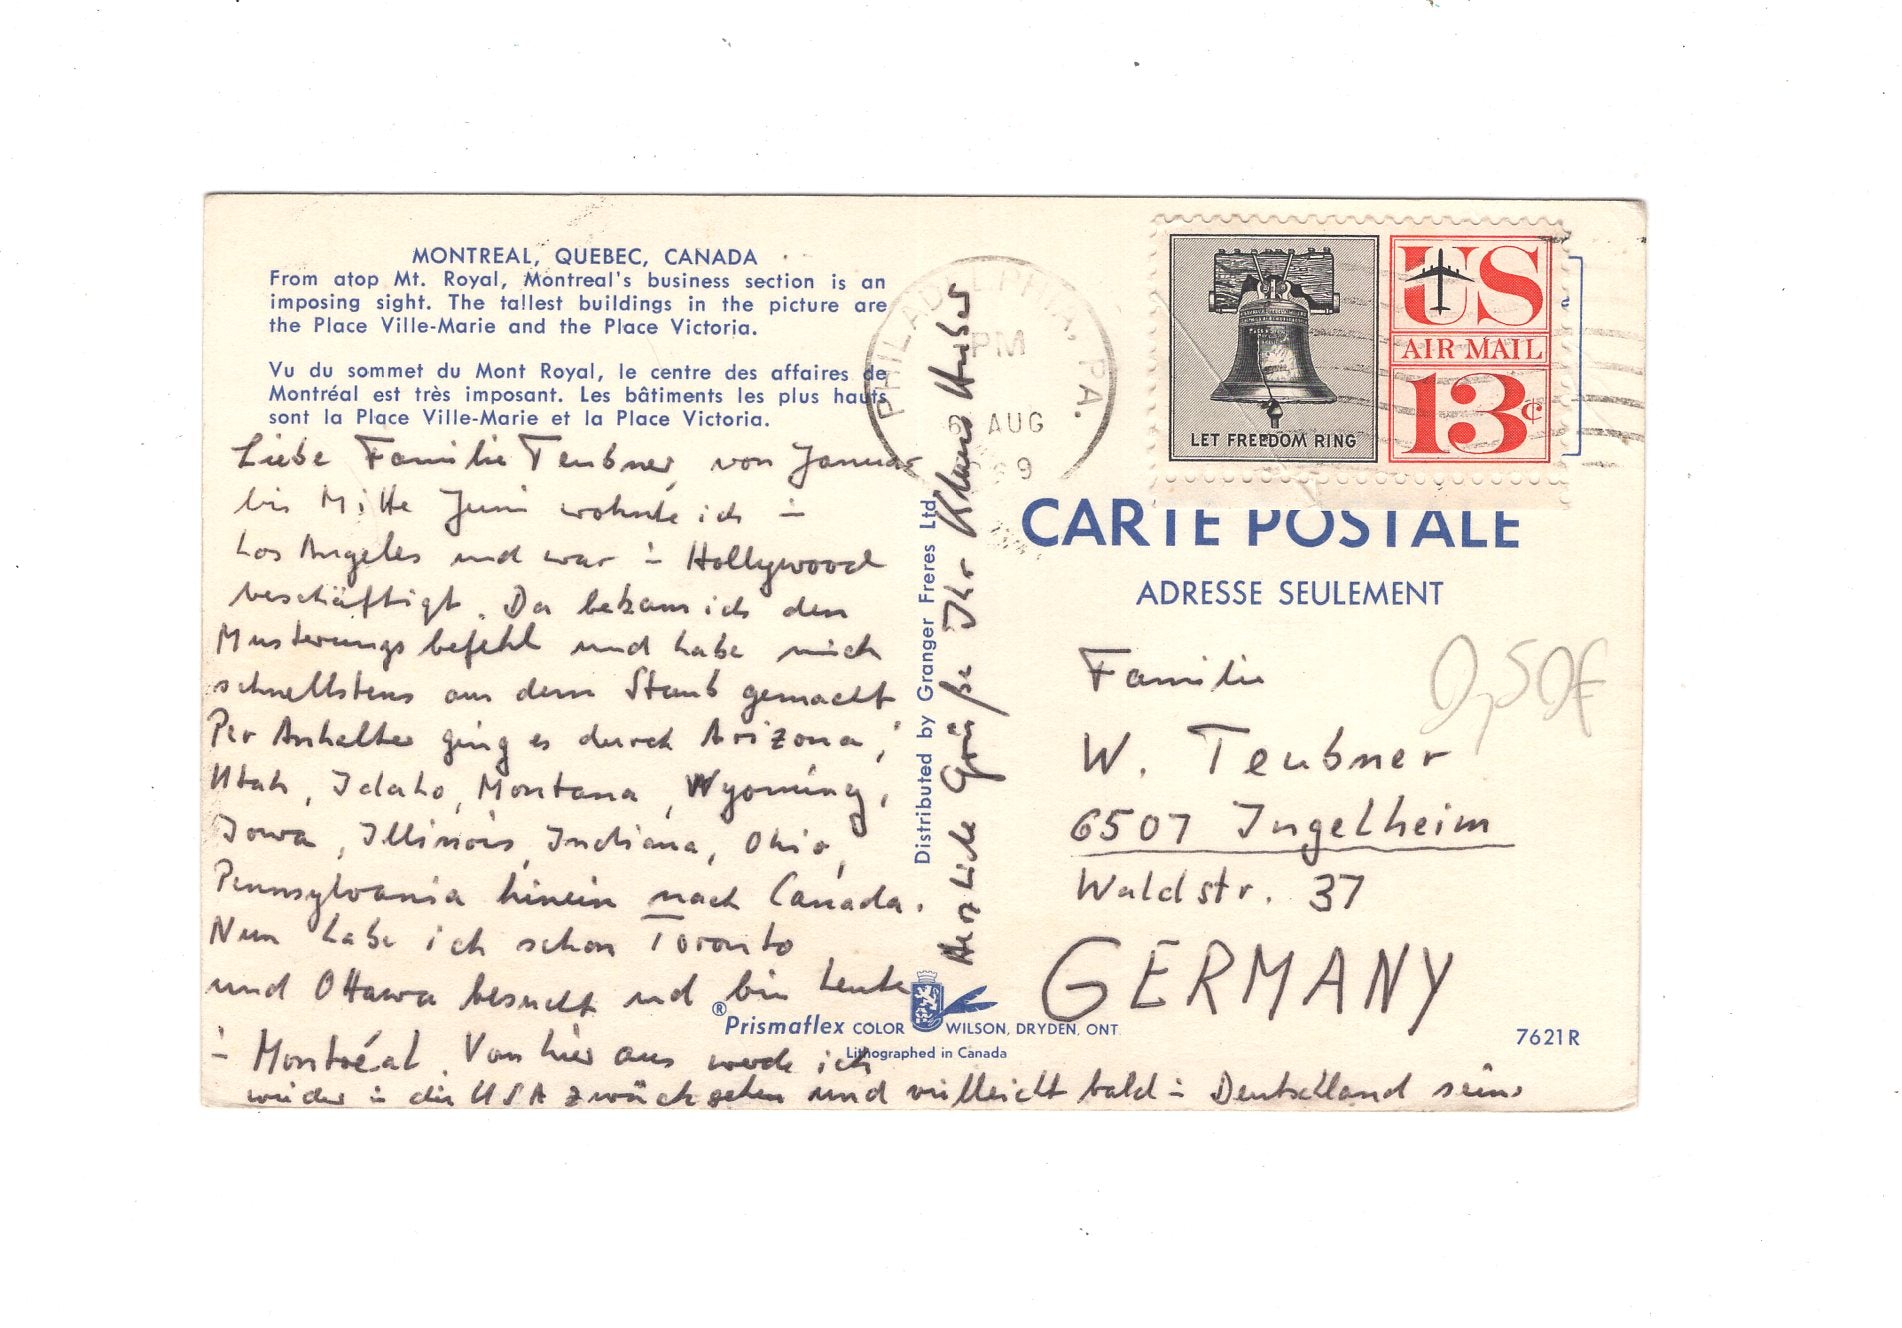 MONTREAL, QUEBEC, CANADA
From atop Mt. Royal, Montreal's business section is an
imposing sight. The tallest buildings in the picture are
the Place Ville-Marie and the Place Victoria.
Vu du sommet du Mont Royal, le centre des affaires de
Montréal est très imposant. Les bâtiments les plus hauts
sont la Place Ville-Marie et la Place Victoria.
Liebe Familie Teubner, von Januar
bis Mitte Juni wohnte ich in
Los Angeles und war in Hollywood
beschäftigt. Da bekam ich den
Musterungsbefehl und habe mich
schnellstens aus dem Staub gemacht
Per Anhalter ging es durch Arizona,
Utah, Idaho, Montana, Wyoming,
Iowa, Illinois, Indiana, Ohio,
Pennsylvania hinein nach Canada.
Nun habe ich schon Toronto
und Ottawa besucht und bin heute
in Montréal. Von hier aus werde ich
wieder in die USA zurückgehen und vielleicht bald in Deutschland sein.
Herzliche Grüße Ihr Klaus Huber
Distributed by Granger Freres Ltd.
PHILADELPHIA, PA.
PM
6 AUG
1969
LET FREEDOM RING
US
AIR MAIL
13c
CARTE POSTALE
ADRESSE SEULEMENT
0,50€
Familie
W. Teubner
6507 Ingelheim
Waldstr. 37
GERMANY
® Prismaflex COLOR WILSON, DRYDEN, ONT.
Lithographed in Canada
7621R